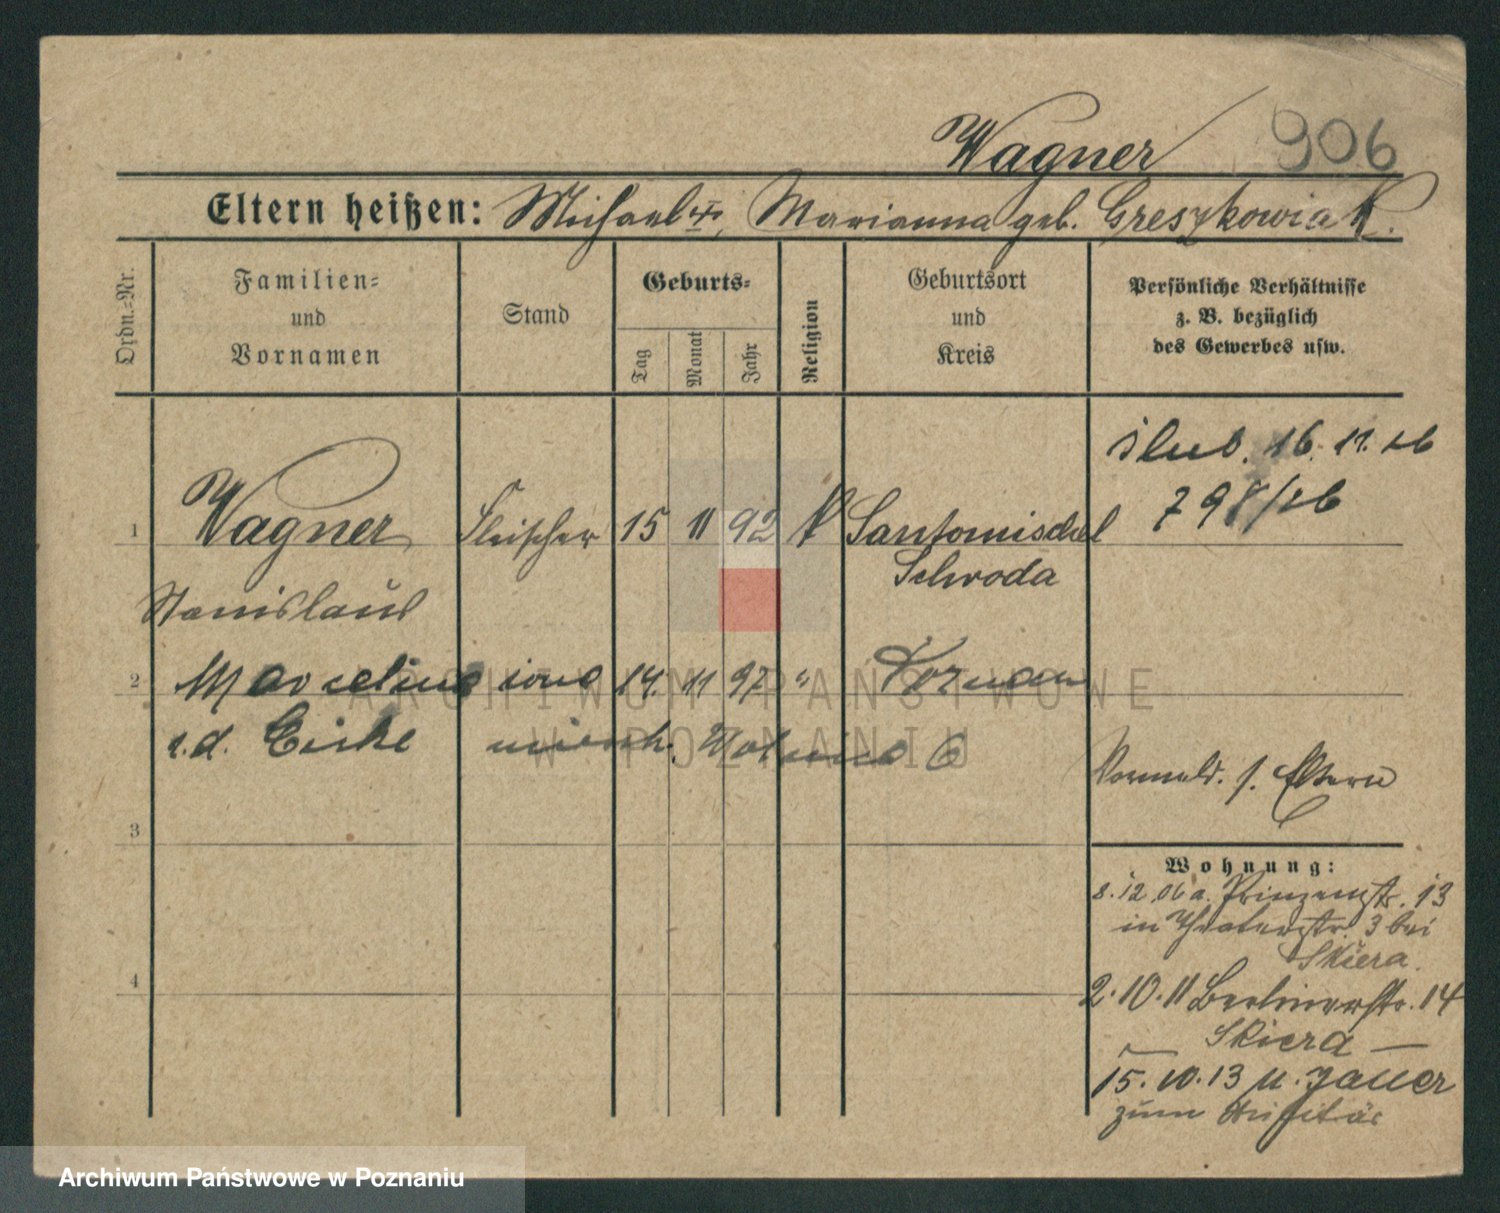 Wagner 906
Eltern heißen: Michael, Marianna geb. Greszkowiak.
Ordn.-Nr.
Familien-
und
Vornamen
Stand
Geburts-
Tag
Monat
Jahr
Religion
Geburtsort
und
Kreis
Persönliche Verhältnisse
z. B. bezüglich
des Gewerbes usw.
ślub. 16. 11. 26
798/26
1 Wagner Fleischer 15 11 92 K Santomischel
Schroda
Stanislaus
2 żona 14. 11 97 " Poznań
z.d.
3
Vormund. s. Eltern
Wohnung:
8. 12. 06 a. Prinzenstr. 13
in Theaterstr. 3 bei
Skiera.
4
2. 10. 11 Berlinerstr. 14
Skiera —
15. 10. 13 n. Jauer
zum Militär
ARCHIWUM PAŃSTWOWE
W POZNANIU
Archiwum Państwowe w Poznaniu